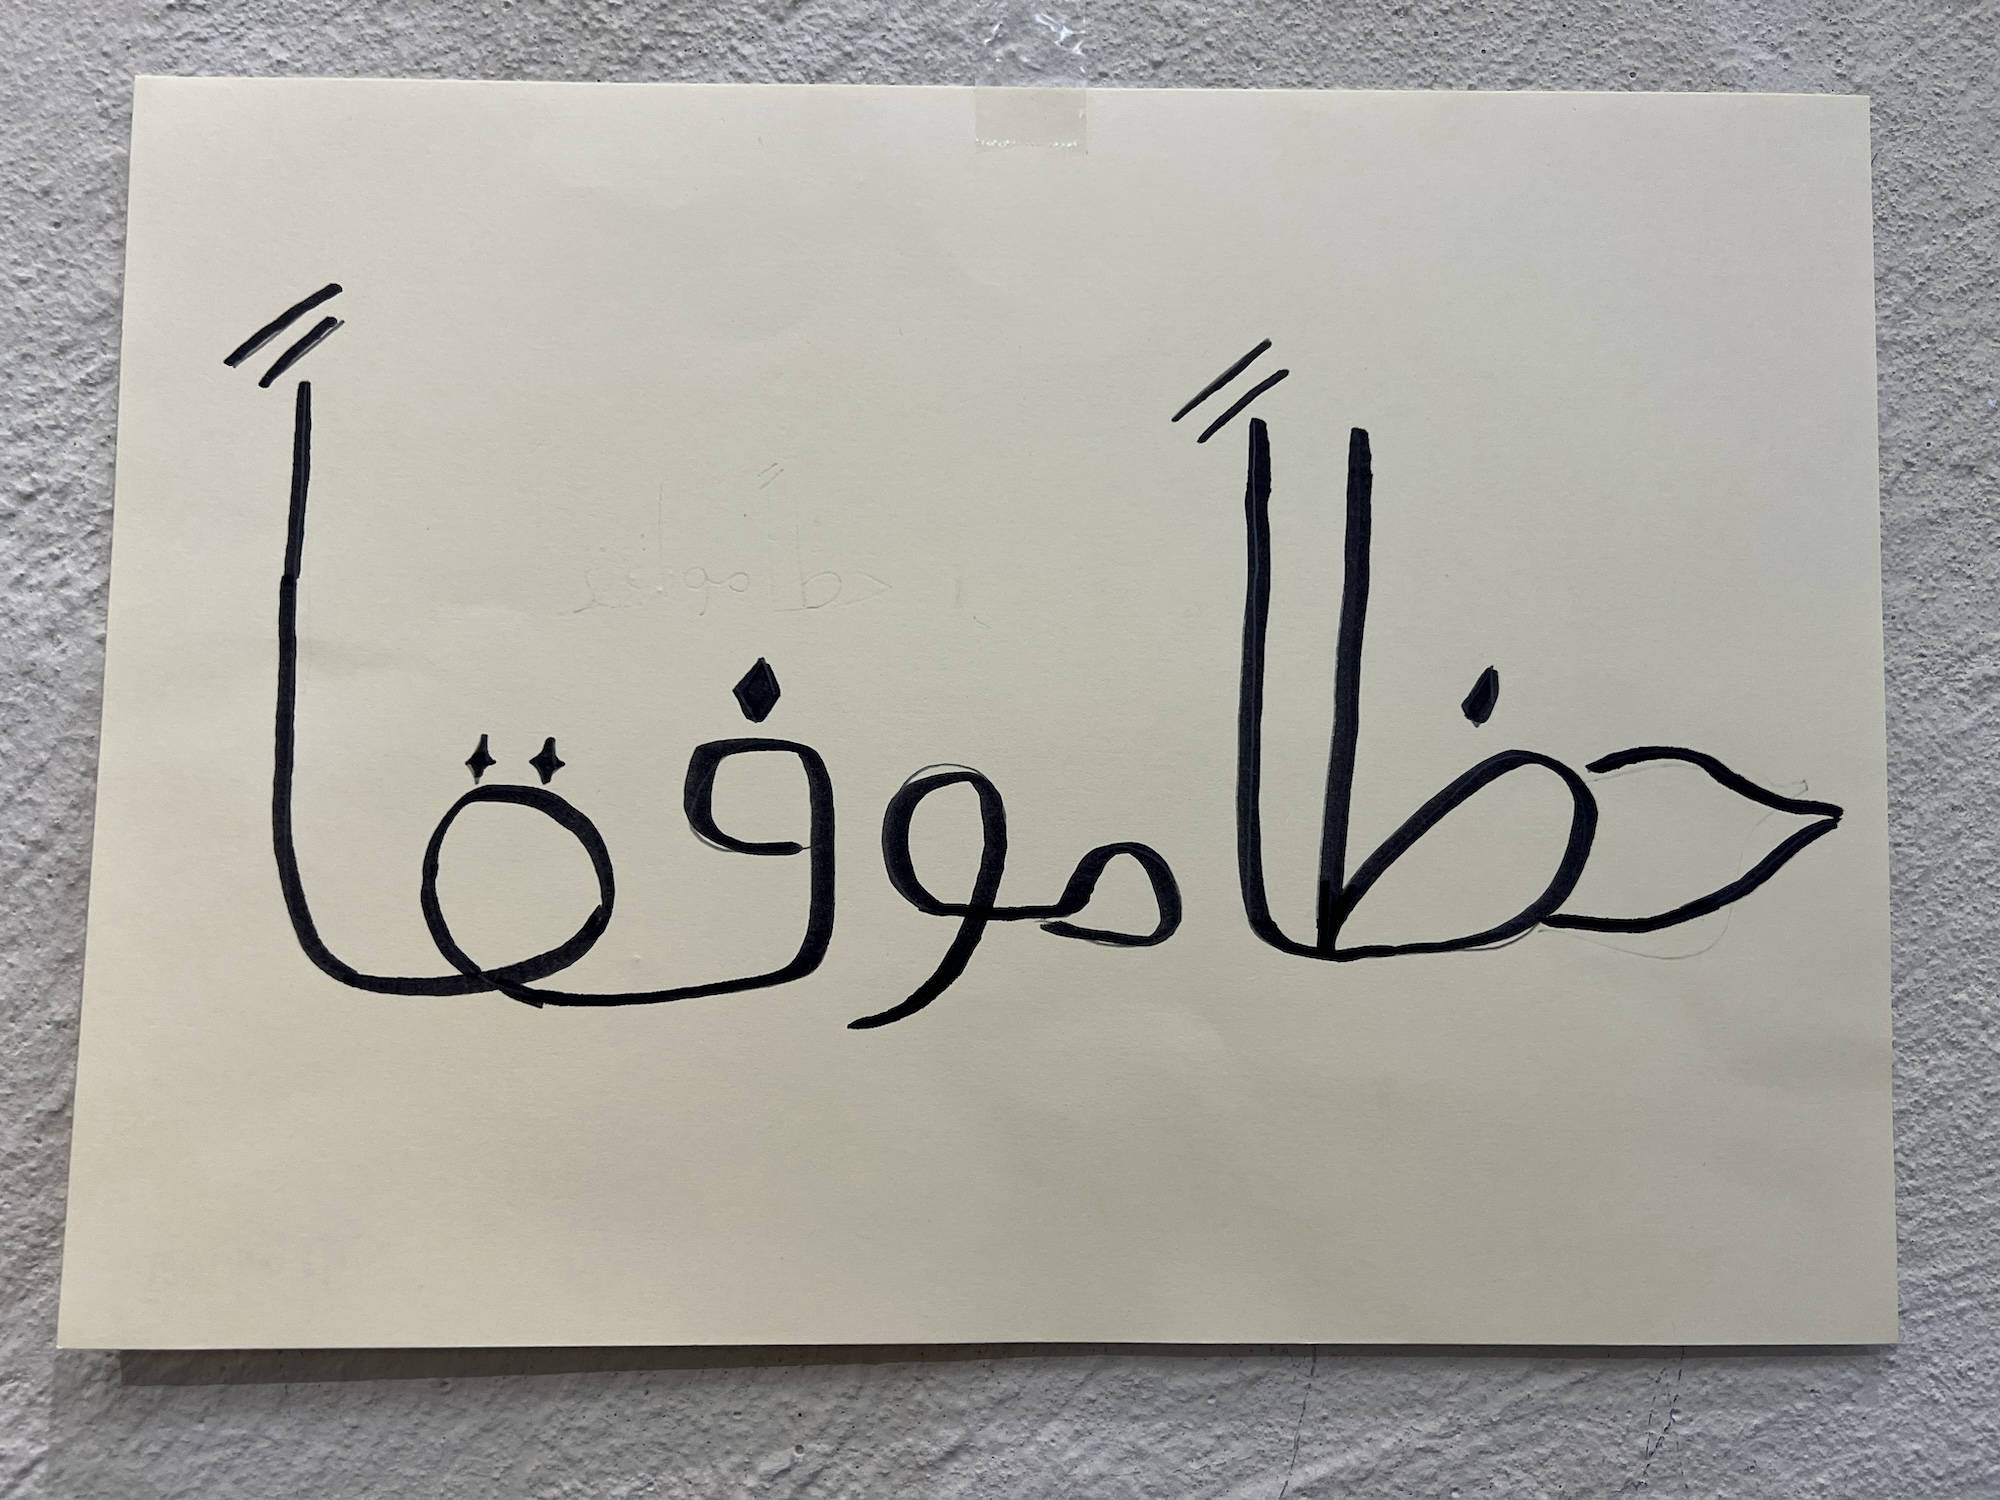 حظاً موفقاً